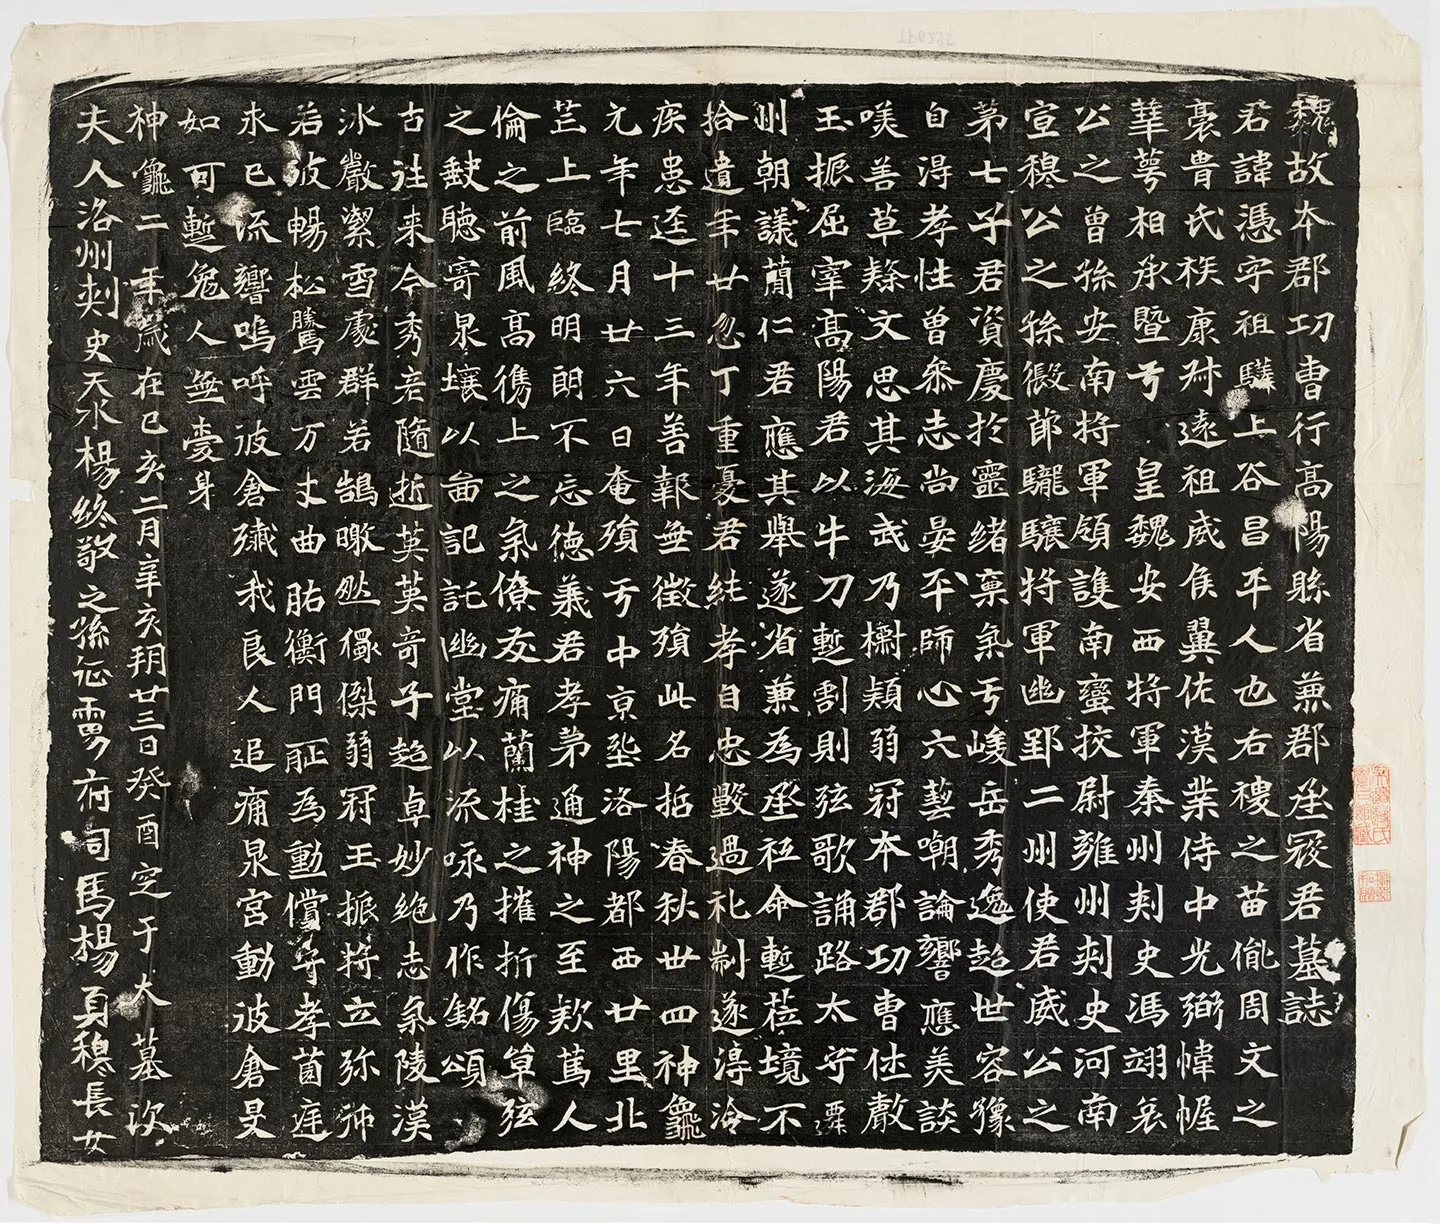 魏故本郡功曹行高陽縣省兼郡丞寇君墓誌
君諱憑字祖驎上谷昌平人也右稷之苗胤周文之
裔貴氏族康叔遠祖威侯翼佐漢業侍中光弼幃幄
華萼相承暨于皇魏安西將軍秦州刾史馮翊哀
公之曾孫安南將軍領護南蠻挍尉雍州刾史河南
宣穆公之孫假節龍驤將軍幽郢二州使君威公之
第七子君資慶於靈緒稟氣于峻岳秀逸超世容豫
自得孝性曾參志尚晏平師心六藝嘲論響應美談
善草隸文思其海武乃櫛穎弱冠本郡功曹
玉振屈宰高陽君以牛刀暫割則弦歌誦路太守譚
州朝議蕑仁君應其舉遂省兼為丞秖命蹔莅境不
拾遺年廿忽丁重憂君純孝自忠毀過礼制遂淂冷
疾患逕十三年善報無徵殞此名哲春秋卅四神龜
元年七月廿六日奄殞于中京洛陽都西廿里北
芒上臨終明朗不忘德義君孝弟通神之至欵篤人
倫之前風高儁上之氣僚友痛蘭桂之摧折傷筸弦
之歇聽寄泉壤以啚記託幽堂以流咏乃作銘頌
古往来今秀彦隨逝英英奇子超卓妙絶志氣陵漢
冰嚴潔雪處群若鵠皦然獨傑弱冠玉振將立弥沖
若彼暢松騰鶱雲万丈曲肱衡門恥為動儻守孝茵庭
永已流響嗚呼彼倉殲我良人追痛泉宫動波倉旻
如可蹔兔人無壹身
神龜二年歲在己亥二月辛亥朔廿三日癸酉窆于大墓次
夫人洛州刾史天水楊終敬之孫征虜府司馬楊貞穆長女